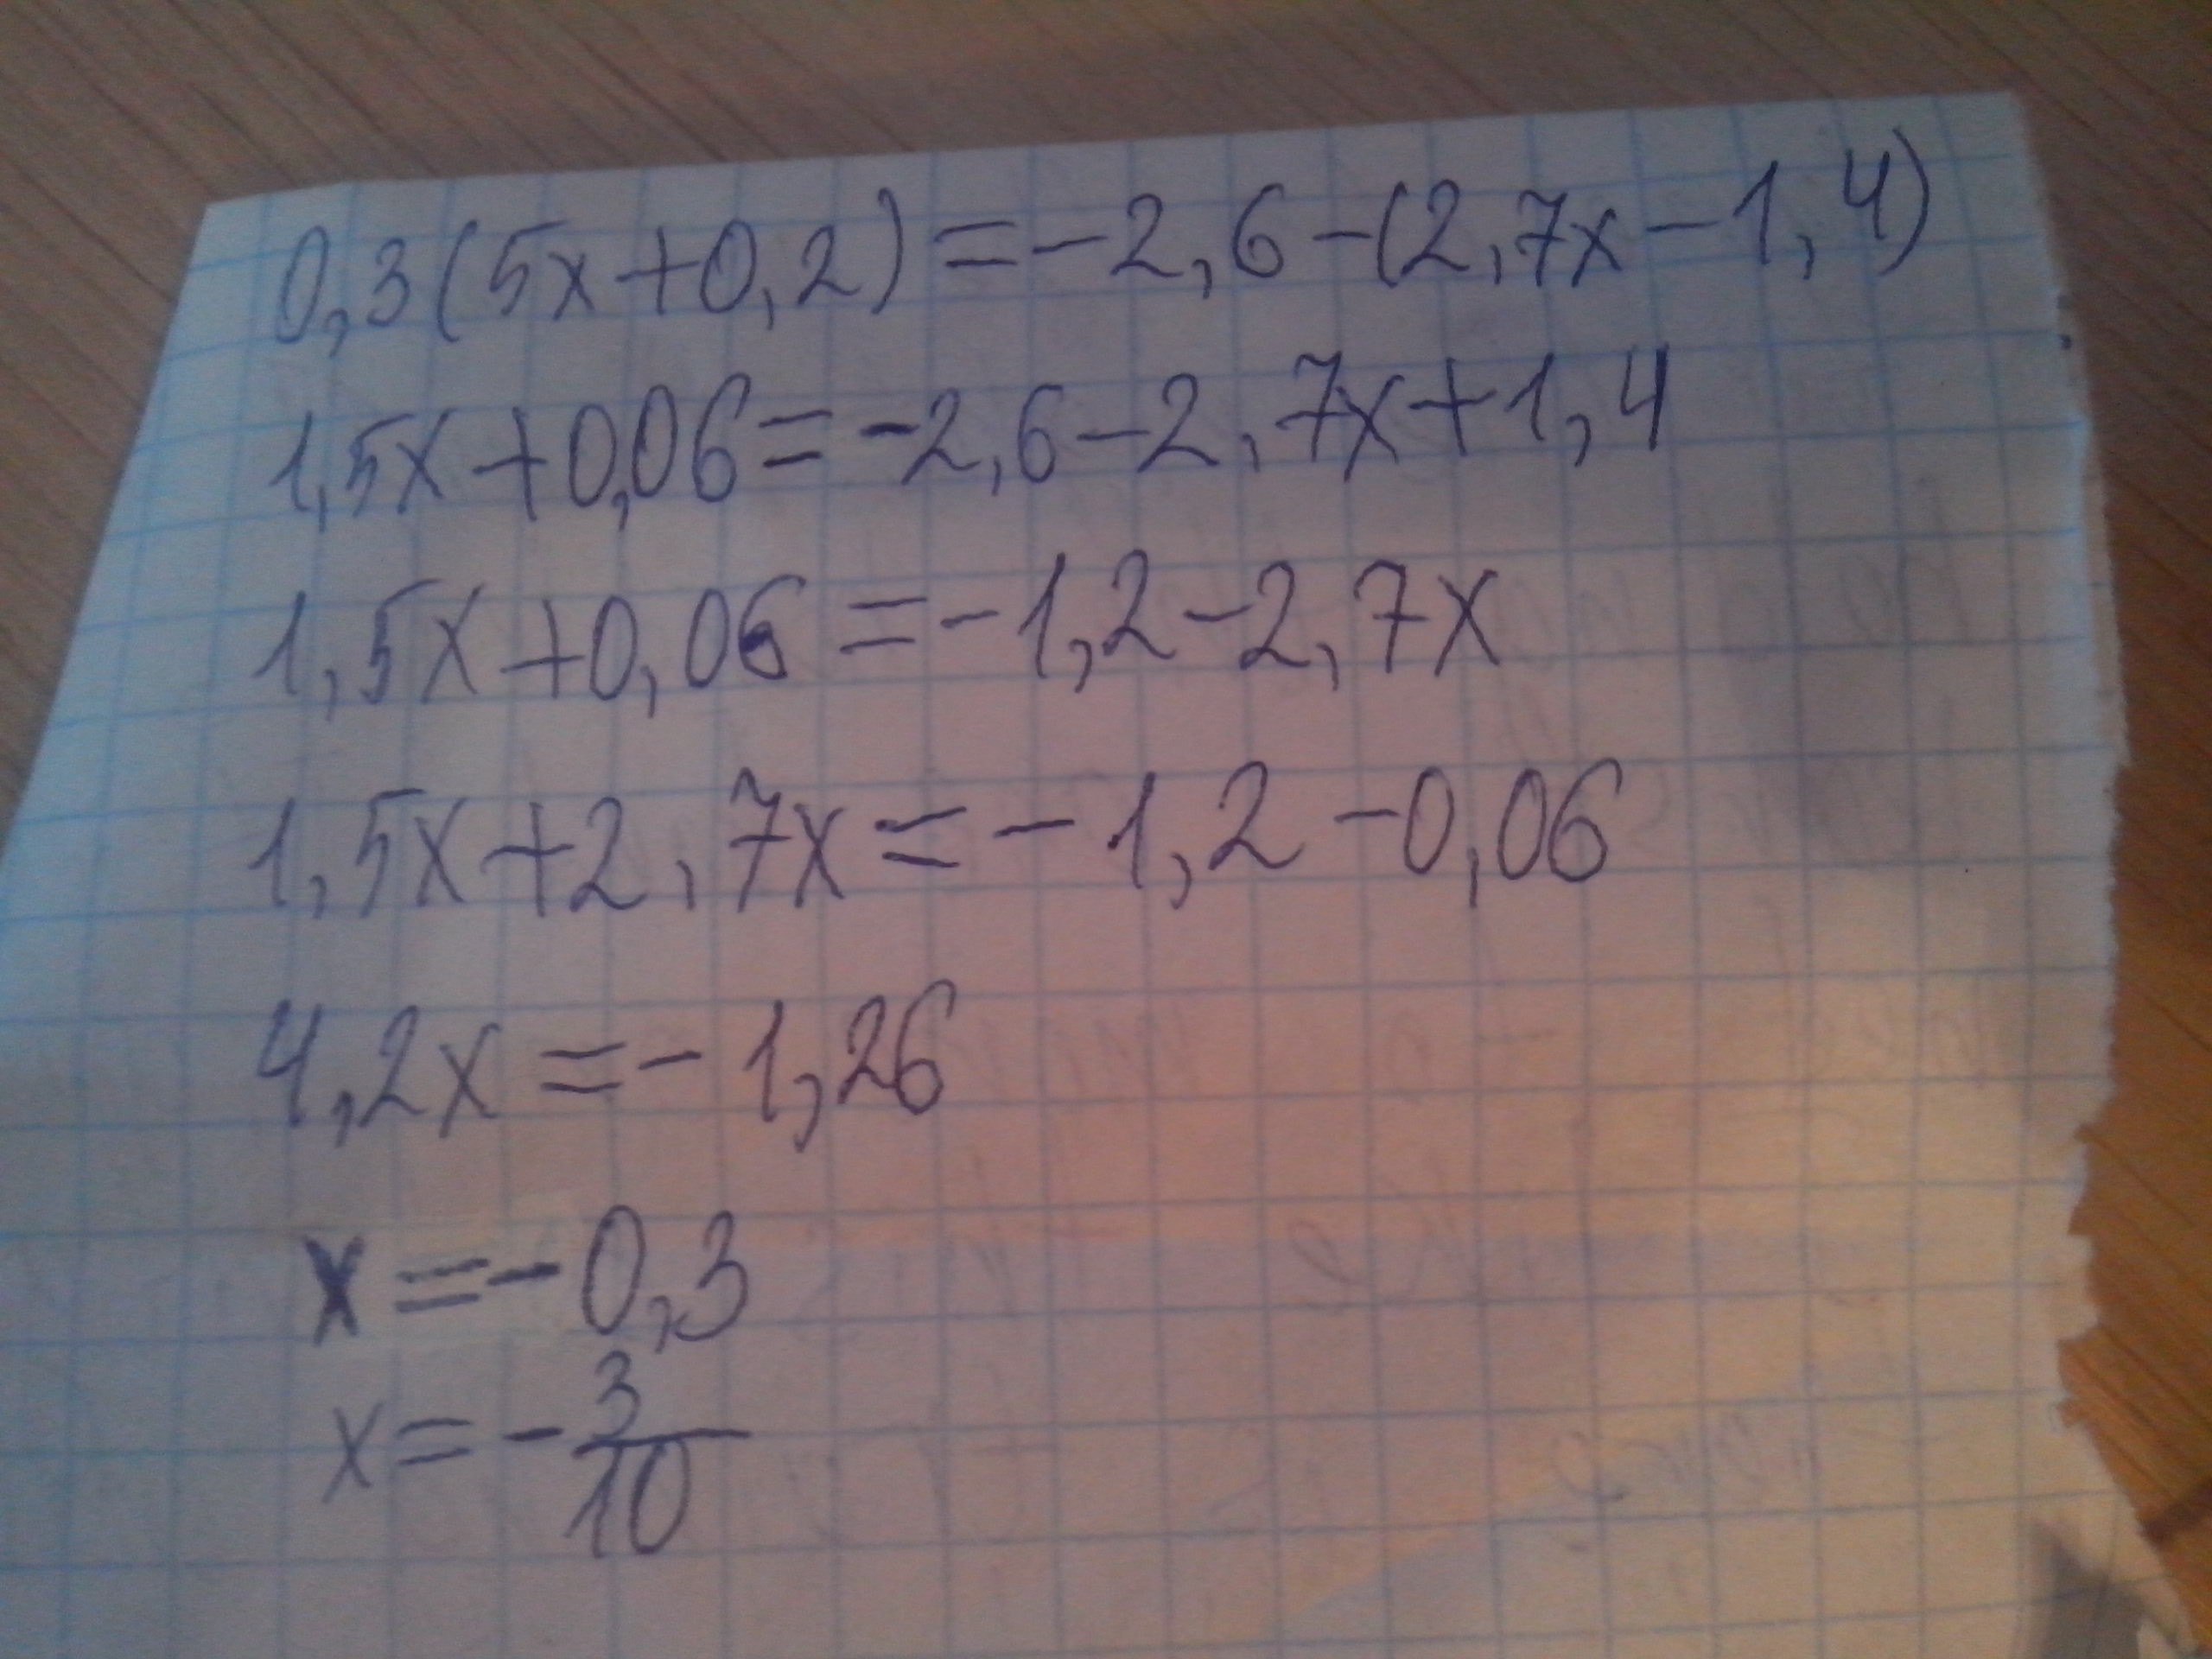 0,3(5x+0,2)=-2,6-(2,7x-1,4)
1,5x+0,06=-2,6-2,7x+1,4
1,5x+0,06=-1,2-2,7x
1,5x+2,7x=-1,2-0,06
4,2x=-1,26
x=-0,3
x=-3/10